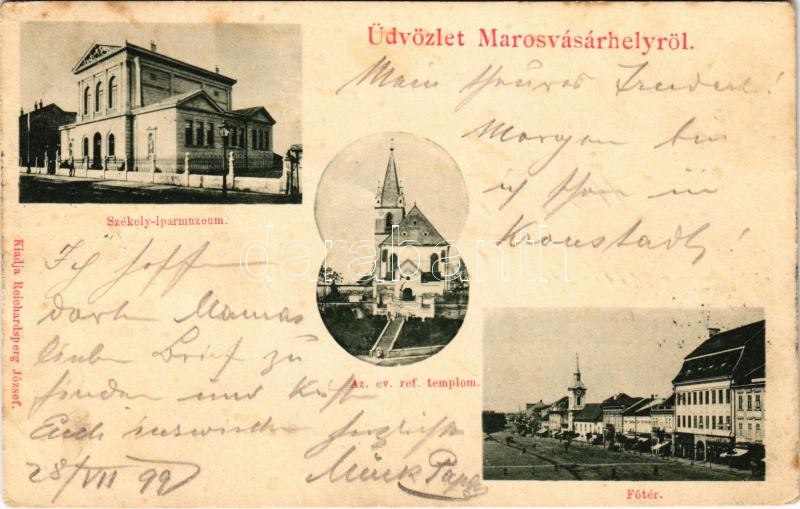 Üdvözlet Marosvásárhelyröl.
Mein theures
Morgen bin
ich schon in
Kronstadt!
Székely-iparmuzeum.
Az. ev. ref. templom.
Főtér.
Kiadja Reichardsperg József.
Ich hoffe
dort Mamas
lieben Brief zu
finden und
Euch inzwischen herzlichst
28/VII 99
darabanth